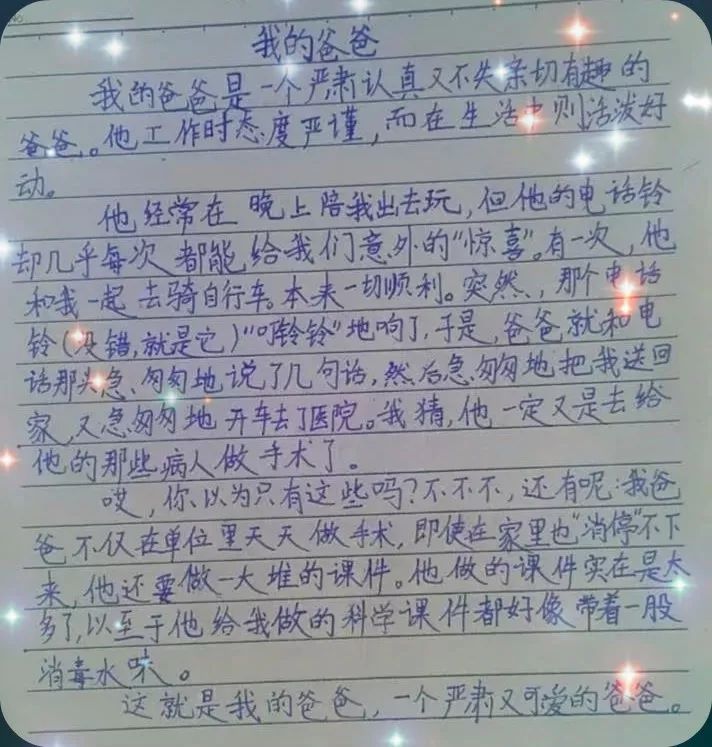 我的爸爸
我的爸爸是一个严肃认真又不失亲切有趣的
爸爸。他工作时态度严谨，而在生活中则活泼好
动。
他经常在晚上陪我出去玩，但他的电话铃
却几乎每次都能给我们意外的“惊喜”。有一次，他
和我一起去骑自行车。本来一切顺利。突然，那个电话
铃（没错，就是它）“叮铃铃”地响了，于是，爸爸就和电
话那头急匆匆地说了几句话，然后急匆匆地把我送回
家，又急匆匆地开车去了医院。我猜，他一定又是去给
他的那些病人做手术了。
哎，你以为只有这些吗？不不不，还有呢：我爸
爸不仅在单位里天天做手术，即使在家里也“消停”不下
来，他还要做一大堆的课件。他做的课件实在是太
多了，以至于他给我做的科学课件都好像带着一股
消毒水味。
这就是我的爸爸，一个严肃又可爱的爸爸。